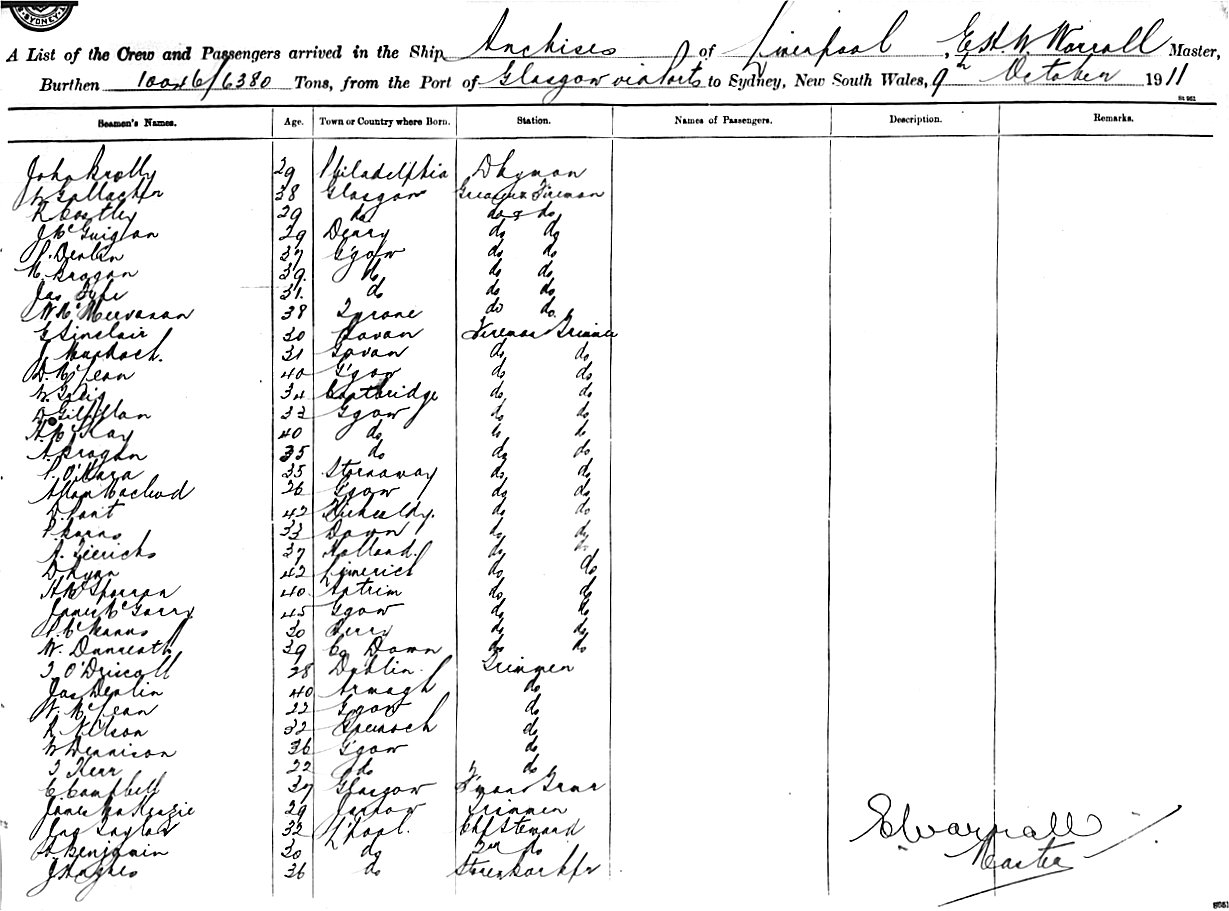 SYDNEY
A List of the Crew and Passengers arrived in the Ship Anchises of Liverpool, E.H.W. Worrall Master,
Burthen 10046/6380 Tons, from the Port of Glasgow via Ports to Sydney, New South Wales, 9th October 1911
St 962
Seamen's Names. Age. Town or Country where Born. Station. Names of Passengers. Description. Remarks.
John 29 Philadelphia Dkyman
W Gallacher 38 Glasgow Greaser & Fireman
R Costley 29 do do & do
J McGuigan 29 Derry do do
P. Devlin 37 G'gow do do
M. Brogan 39. do do do
Jas Fyfe 31. do do do
W 38 Tyrone do do.
E Sinclair 30 Fireman & Trimmer
J Murdoch. 31 Govan do do
D. McLean 40 G'gow do do
W. Greig 34 Coatbridge do do
D Gilfillan 33 G'gow do do
H. McKay 40 do do do
A. Brogan 35 do do do
P. O'Hara 35 Stornaway do do
Allan Macleod 26 G'gow do do
42 do do
P. 33 Down do do
A. 37 Holland. do do
D Lynn 42 Limerick do do
A McSporran 40 Antrim do do
James McGarry 45 G'gow do do
P. McManus 30 do do
W. 39 Co Down do do
T O'Driscoll 28 Dublin. Trimmer
Jas Devlin 40 Armagh do
W. McLean 22 G'gow do
R Nelson 32 Greenock do
W Dennison 36 G'gow do
T Kerr 22 do do
C. Campbell 37 Glasgow
James MacKenzie 29 Jarrow Trimmer
Taylor 32 L'pool. Chf Steward
A. Benjamin 30 do 2nd do
J Hughes 36 do Storekeeper
E Worrall
Master